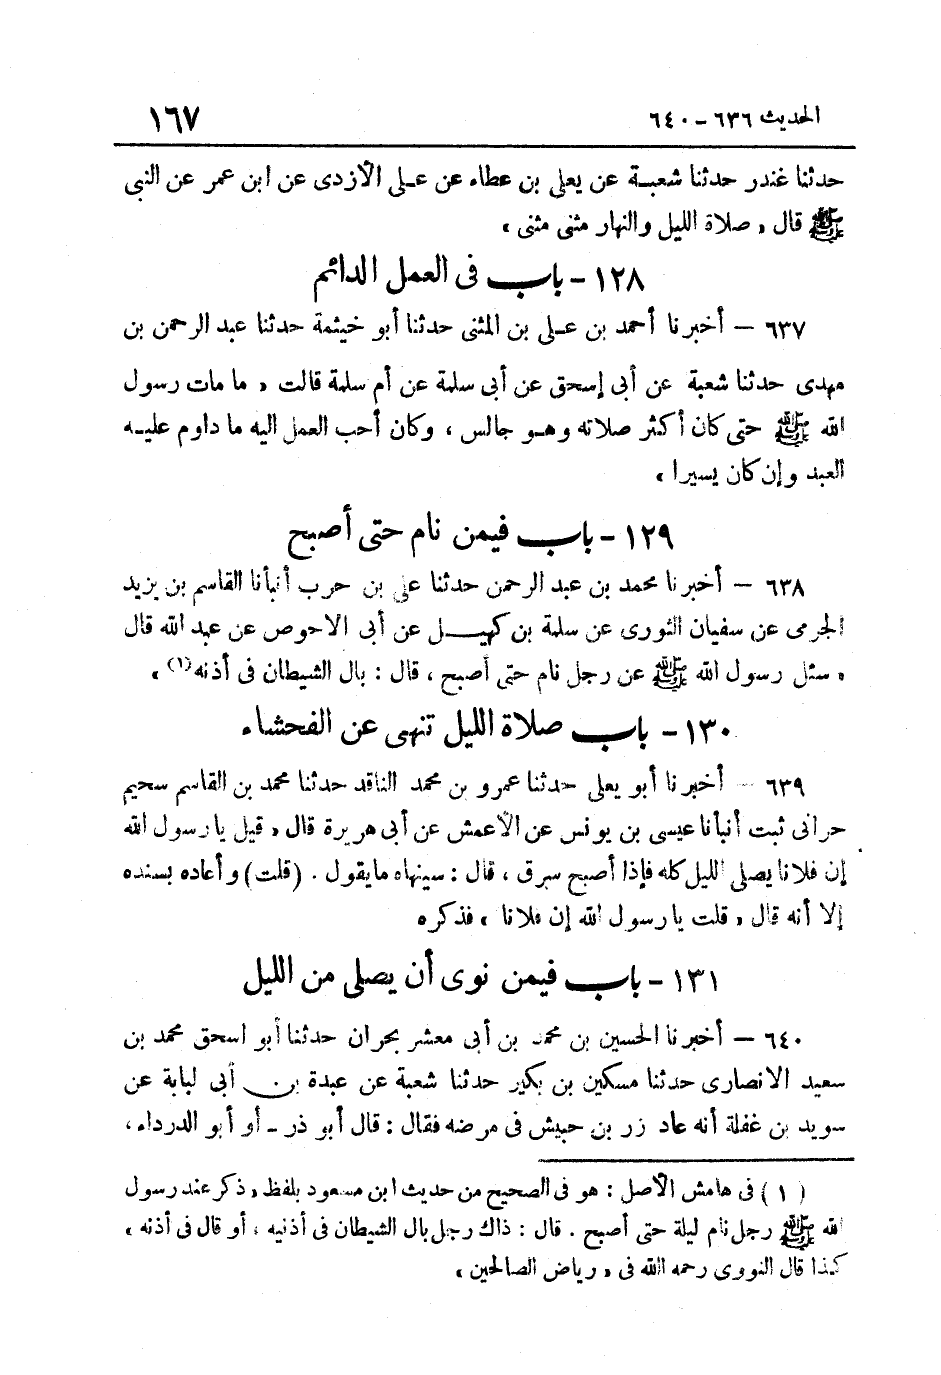 الحديث ٦٣٦ - ٦٤٠ ١٦٧
حدثنا غندر حدثنا شعبة عن يعلى بن عطاء عن على الأزدى عن ابن عمر عن النبى
ﷺ قال « صلاة الليل والنهار مثنى مثنى »
١٢٨ - باب فى العمل الدائم
٦٣٧ - أخبرنا أحمد بن على بن المثنى حدثنا أبو خيثمة حدثنا عبد الرحمن بن
مهدى حدثنا شعبة عن أبى إسحق عن أبى سلمة عن أم سلمة قالت « ما مات رسول
الله ﷺ حتى كان أكثر صلاته وهو جالس ، وكان أحب العمل اليه ما داوم عليه
العبد وإن كان يسيرا »
١٢٩ - باب فيمن نام حتى أصبح
٦٣٨ - أخبرنا محمد بن عبد الرحمن حدثنا على بن حرب أنبأنا القاسم بن يزيد
الجرمى عن سفيان الثورى عن سلمة بن كهيل عن أبى الاحوص عن عبد الله قال
« سئل رسول الله ﷺ عن رجل نام حتى أصبح ، قال : بال الشيطان فى أذنه (١) »
١٣٠ - باب صلاة الليل تنهى عن الفحشاء
٦٣٩ - أخبرنا أبو يعلى حدثنا عمرو بن محمد الناقد حدثنا محمد بن القاسم سحيم
حرانى ثبت أنبأنا عيسى بن يونس عن الأعمش عن أبى هريرة قال « قيل يا رسول الله
إن فلانا يصلى الليل كله فإذا أصبح سرق ، قال : سينهاه ما يقول . (قلت) وأعاده بسنده
إلا أنه قال « قلت يا رسول الله إن فلانا » فذكره
١٣١ - باب فيمن نوى أن يصلى من الليل
٦٤٠ - أخبرنا الحسين بن محمد بن أبى معشر بحران حدثنا أبو اسحق محمد بن
سعيد الانصارى حدثنا مسكين بن بكير حدثنا شعبة عن عبدة بن أبى لبابة عن
سويد بن غفلة أنه عاد زر بن حبيش فى مرضه فقال : قال أبو ذر - أو أبو الدرداء ،
(١) فى هامش الأصل : هو فى الصحيح من حديث ابن مسعود بلفظ « ذكر عند رسول
الله ﷺ رجل نام ليلة حتى أصبح . قال : ذاك رجل بال الشيطان فى أذنيه ، أو قال فى أذنه »
كذا قال النووى رحمه الله فى « رياض الصالحين »